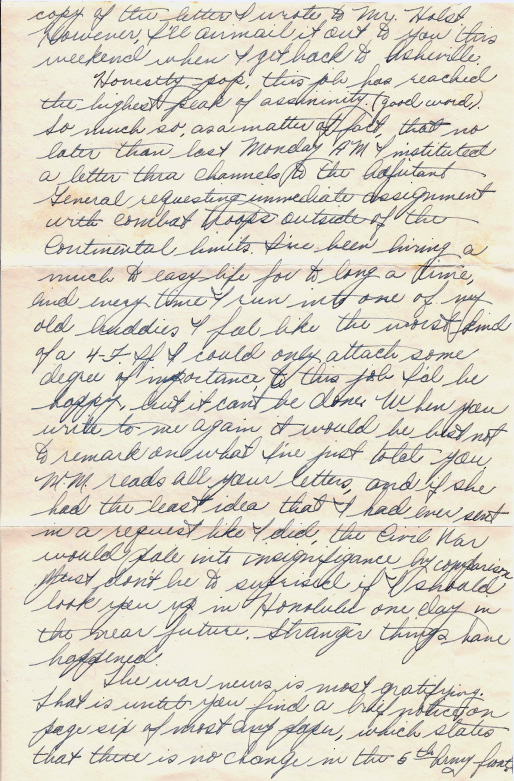 copy of the letter I wrote to Mr. Holst
However, I'll airmail it out to you this
weekend when I get back to Asheville.
Honestly pop, this job has reached
the highest peak of assininity. (good word).
So much so, as a matter of fact, that no
later than last Monday A.M. I instituted
a letter thru channels to the Adjutant
General requesting immediate assignment
with combat troops outside of the
Continental limits. I've been living a
much to easy life for to long a time,
and every time I run into one of my
old buddies I feel like the worst kind
of a 4-F. If I could only attach some
degree of importance to this job I'd be
happy, but it cant be done. When you
write to me again it would be best not
to remark on what I've just told you
M.M. reads all your letters, and if she
had the least idea that I had ever sent
in a request like I did, the Civil War
would pale into insignifigance by comparison
Just dont be to suprised if I should
look you up in Honolulu one day in
the near future. Stranger things have
happened.
The war news is most gratifying.
That is until you find a brief notice on
page six of most any paper, which states
that there is no change in the 5th Army front